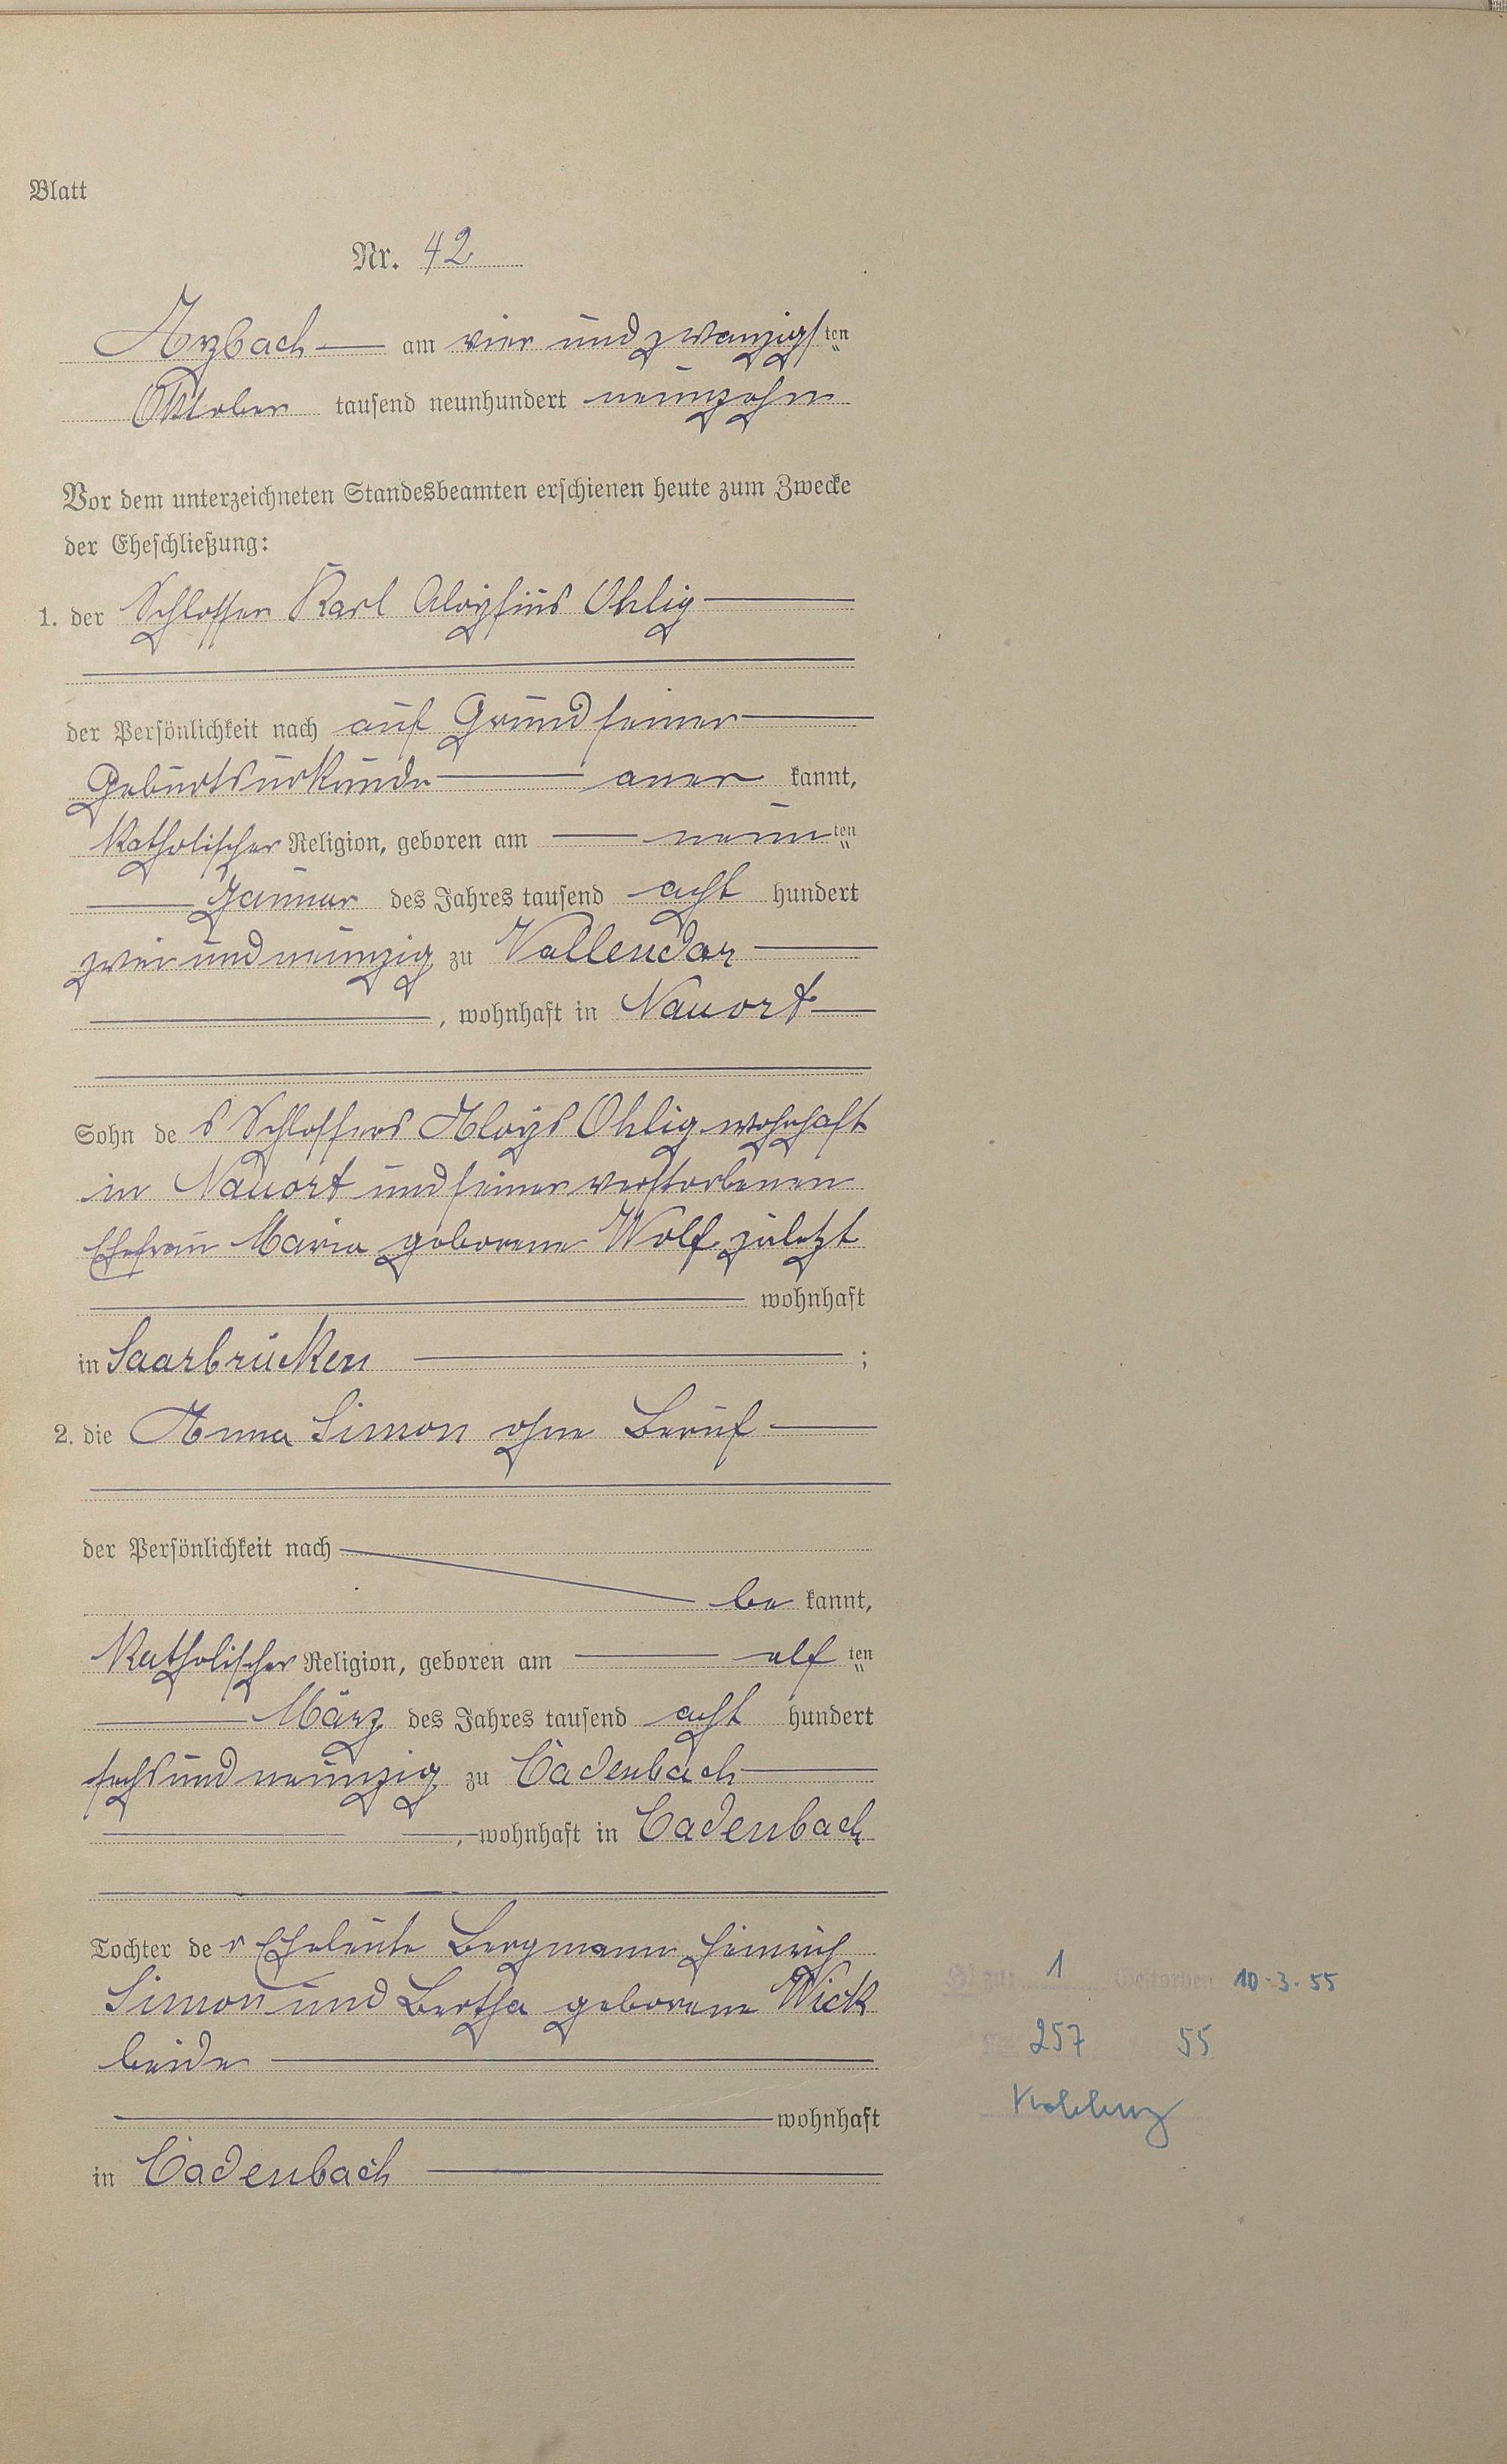 Blatt
Nr. 42
Arzbach am vier und zwanzigsten
Oktober tausend neunhundert neunzehn
Vor dem unterzeichneten Standesbeamten erschienen heute zum Zwecke
der Eheschließung:
1. der Schlosser Karl Aloysius Ohlig
der Persönlichkeit nach auf Grund seiner
Geburtsurkunde aner kannt,
katholischer Religion, geboren am neun ten
Januar des Jahres tausend acht hundert
zwei und neunzig zu Vallendar
, wohnhaft in Nauort
Sohn des Schlossers Aloys Ohlig wohnhaft
in Nauort und seiner verstorbenen
Ehefrau Maria geborene Wolf zuletzt
wohnhaft
in Saarbrücken ;
2. die Anna Simon ohne Beruf
der Persönlichkeit nach
be kannt,
katholischer Religion, geboren am elf ten
März des Jahres tausend acht hundert
sechs und neunzig zu Cadenbach
, wohnhaft in Cadenbach
Tochter der Eheleute Bergmann Heinrich
Simon und Bertha geborene Wick
beide
wohnhaft
in Cadenbach
zu: 1 Gestorben 10.3.55
257 55
Koblenz